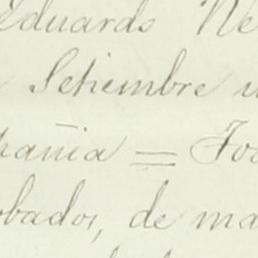 Eduardo Ne
Setiembre u
pañia = Foo
obados, de ma